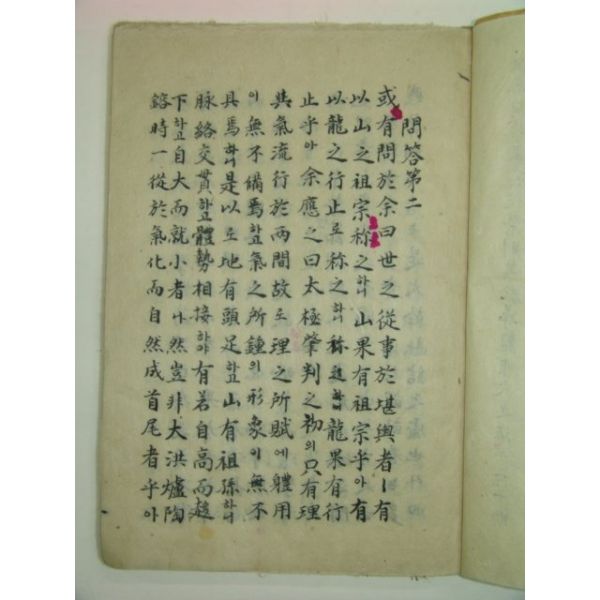 或問答第二
有問於余曰世之從事於堪輿者ㅣ有
以山之祖宗称之하니山果有祖宗乎아有
以龍之行止로称之하니龍果有行
止乎아余應之曰太極肇判之初의只有理
與氣流行於兩間故로理之所賦에體用
이無不備焉하고氣之所鍾의形象이無不
具焉하니是以로地有頭足하고山有祖孫하니
脉絡交貫하고體勢相接하야有若自高而趨
下하고自大而就小者나然豈非大洪爐陶
鎔時一從於氣化而自然成首尾者乎아